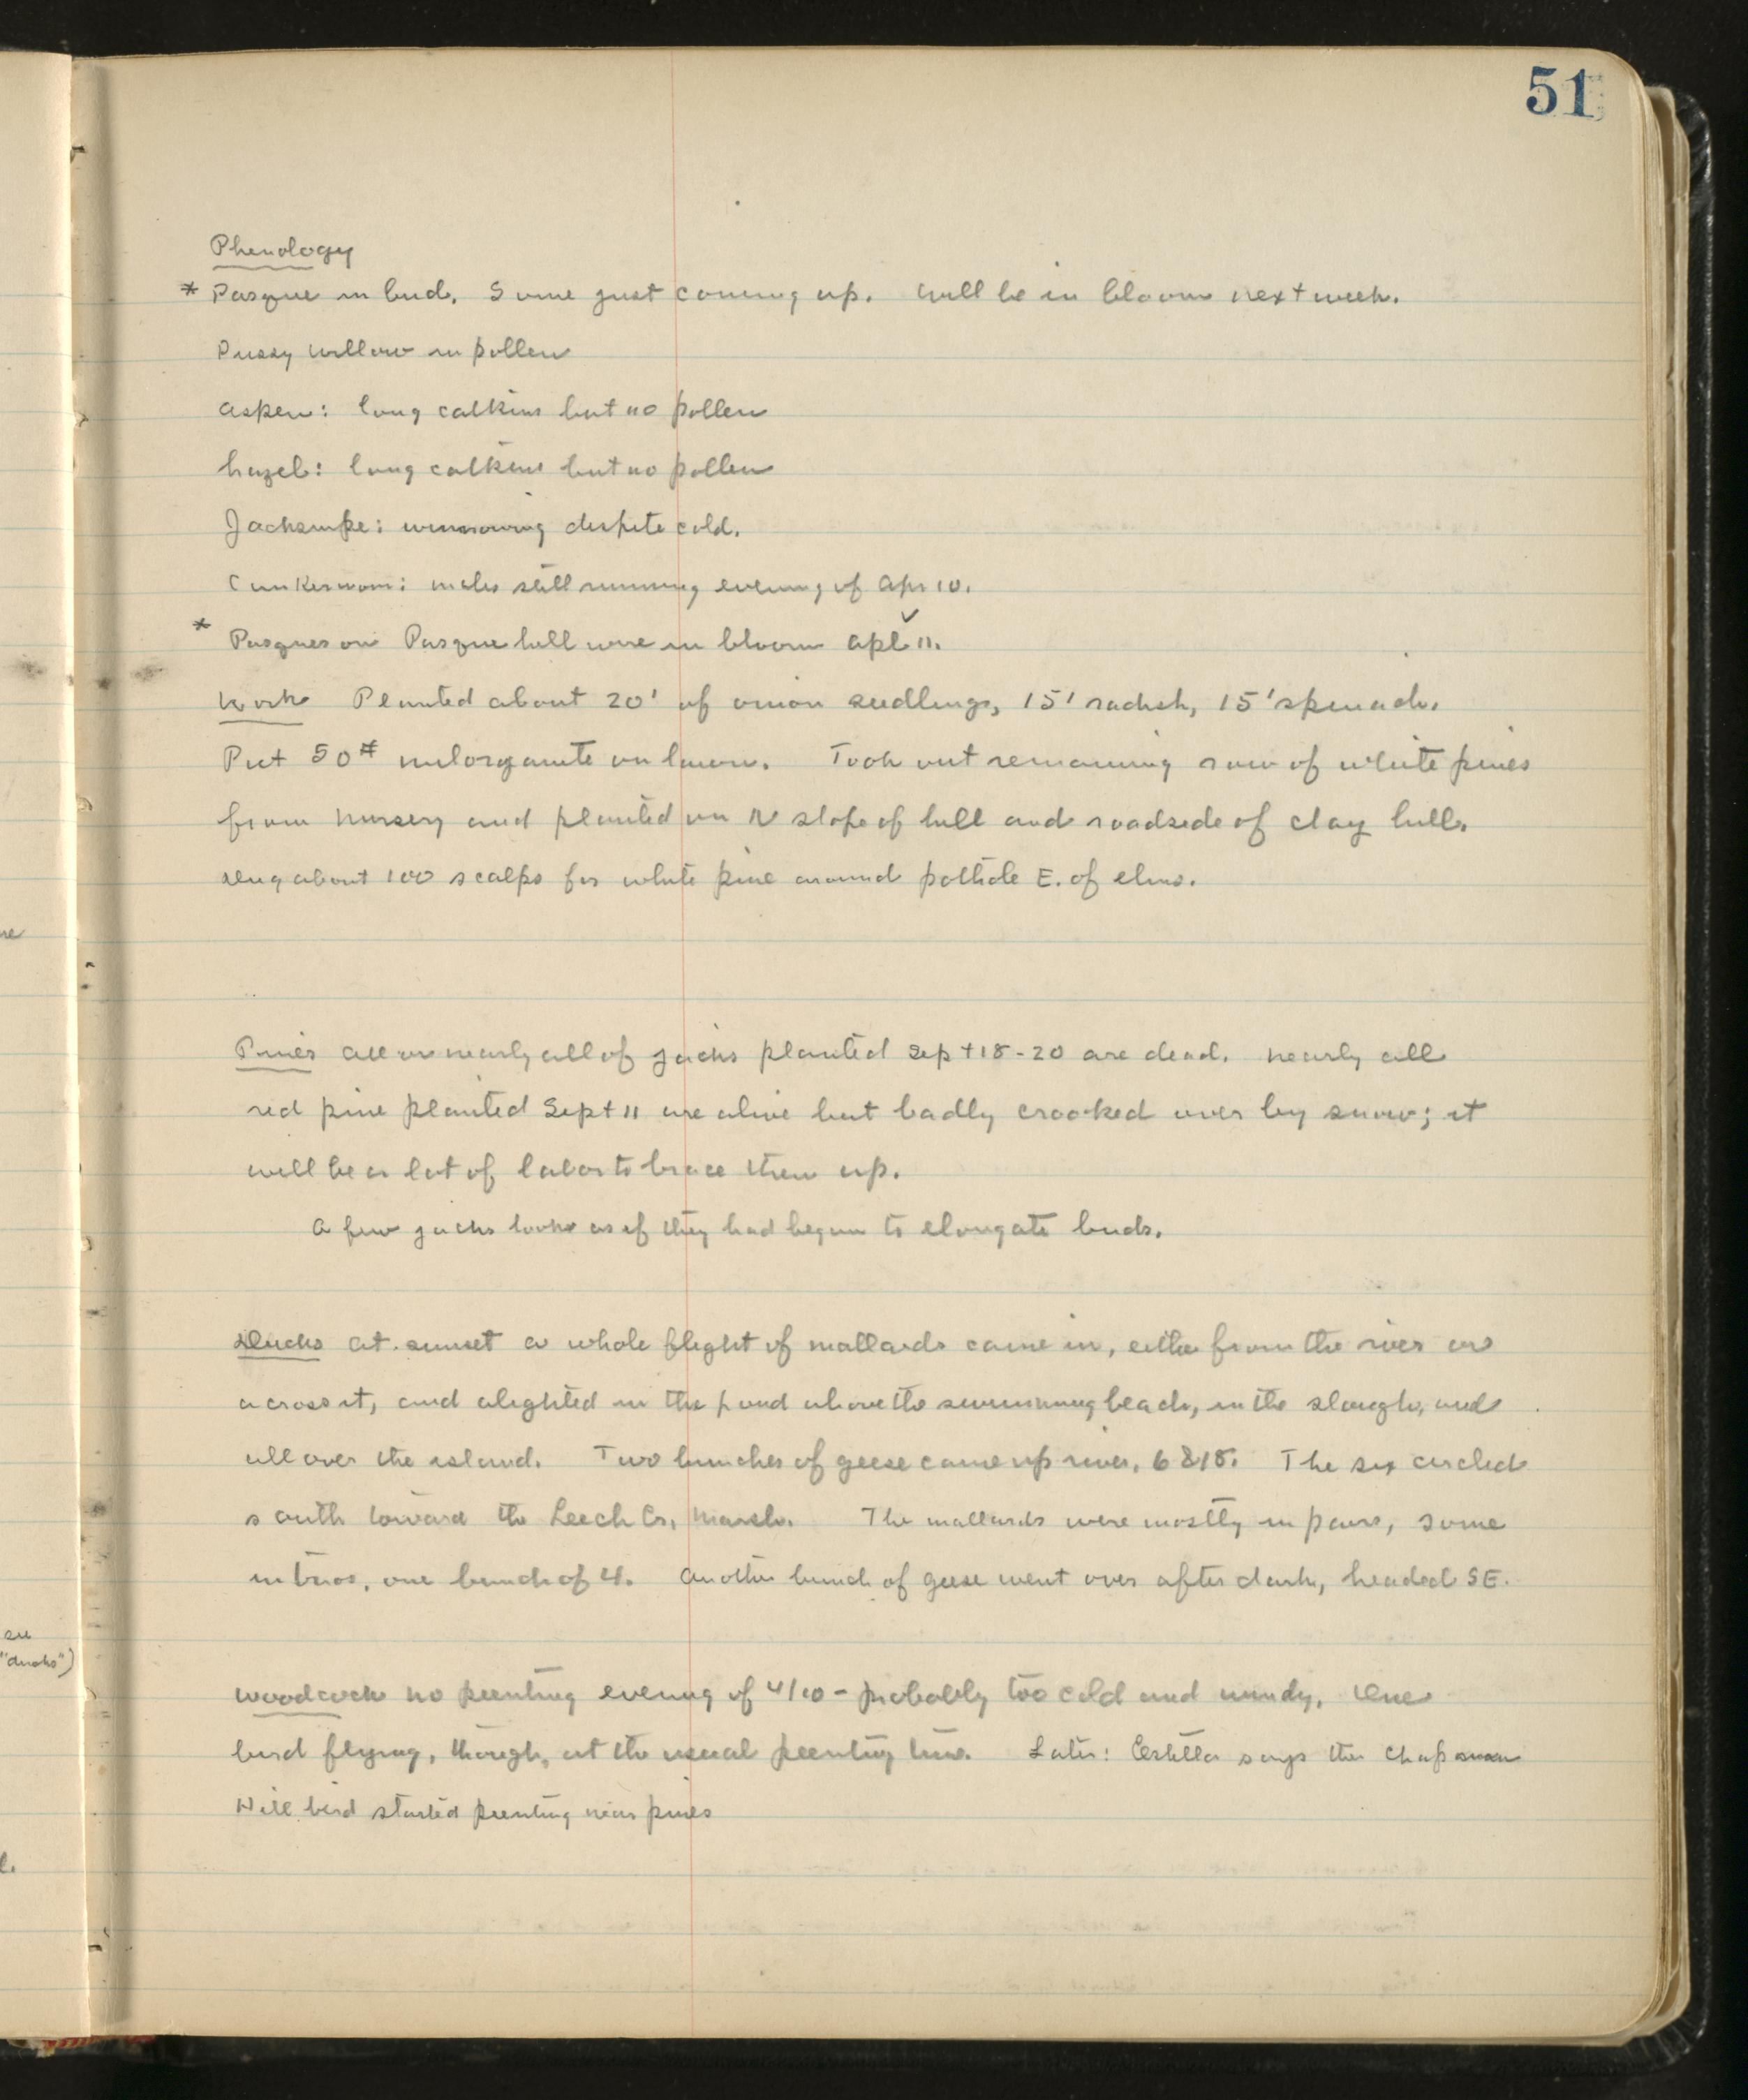 51
Phenology
* Pasque in bud. Some just coming up. Will be in bloom next week.
Pussy willow in pollen
Aspen: long catkins but no pollen
hazel: long catkins but no pollen
Jacksnipe: winnowing despite cold.
Cankerworm: males still running evening of Apr 10.
* Pasques on Pasque hill were in bloom Apl ✓ 11.
Work Planted about 20' of onion seedlings, 15' radish, 15' spinach.
Put 50# milorganite on lawn. Took out remaining row of white pines
from nursery and planted on N slope of hill and roadside of clay hill.
Dug about 100 scalps for white pine around pothole E. of elms.
Pines All or nearly all of jacks planted Sept 18-20 are dead. Nearly all
red pine planted Sept 11 are alive but badly crooked over by snow; it
will be a lot of labor to brace them up.
A few jacks look as if they had begun to elongate buds.
Ducks At sunset a whole flight of mallards came in, either from the river or
across it, and alighted in the pond above the swimming beach, in the slough, and
all over the island. Two bunches of geese came up river, 6 & 18. The six circled
south toward the Leech Cr. marsh. The mallards were mostly in pairs, some
in trios, one bunch of 4. Another bunch of geese went over after dark, headed SE.
see
"ducks")
Woodcock No peenting evening of 4/10 - probably too cold and windy. One
bird flying, though, at the usual peenting time. Later: Estella says the Chapman
Hill bird started peenting near pines